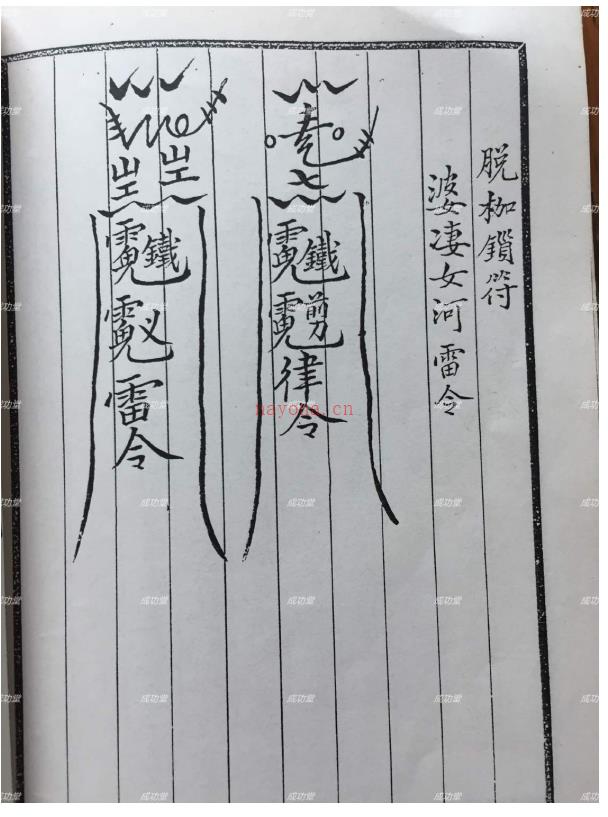 脱枷鎖符
婆凄女河雷令
鐵
剪
律令
鐵
义
雷令
nayona.cn
成功堂